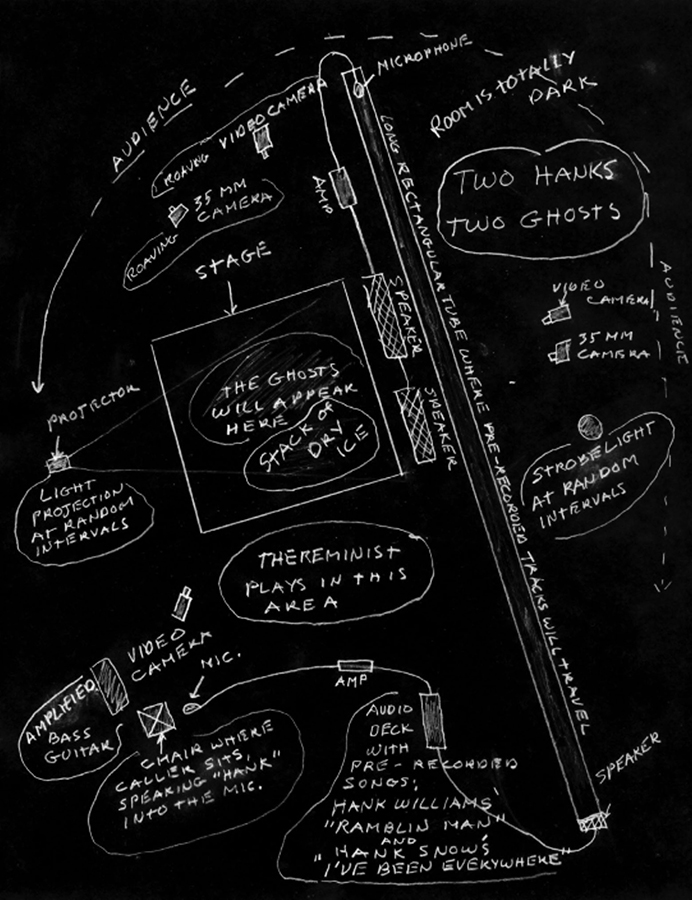 MICROPHONE
AUDIENCE
ROOM IS TOTALLY
DARK
ROAVING VIDEO CAMERA
35 MM
CAMERA
ROAVING
AMP
LONG RECTANGULAR TUBE WHERE PRE-RECORDED TRACKS WILL TRAVEL
TWO HANKS
TWO GHOSTS
STAGE
SPEAKER
VIDEO
CAMERA
35 MM
CAMERA
AUDIENCE
THE GHOSTS
WILL APPEAR
HERE
STACK OF
DRY
ICE
SPEAKER
PROJECTOR
LIGHT
PROJECTION
AT RANDOM
INTERVALS
STROBELIGHT
AT RANDOM
INTERVALS
THEREMINIST
PLAYS IN THIS
AREA
VIDEO
CAMERA
MIC.
AMP
AMPLIFIED
BASS
GUITAR
CHAIR WHERE
CALLER SITS,
SPEAKING "HANK"
INTO THE MIC.
AUDIO
DECK
WITH
PRE-RECORDED
SONGS;
HANK WILLIAMS
"RAMBLIN MAN"
AND
"HANK SNOW'S
I'VE BEEN EVERYWHERE"
SPEAKER